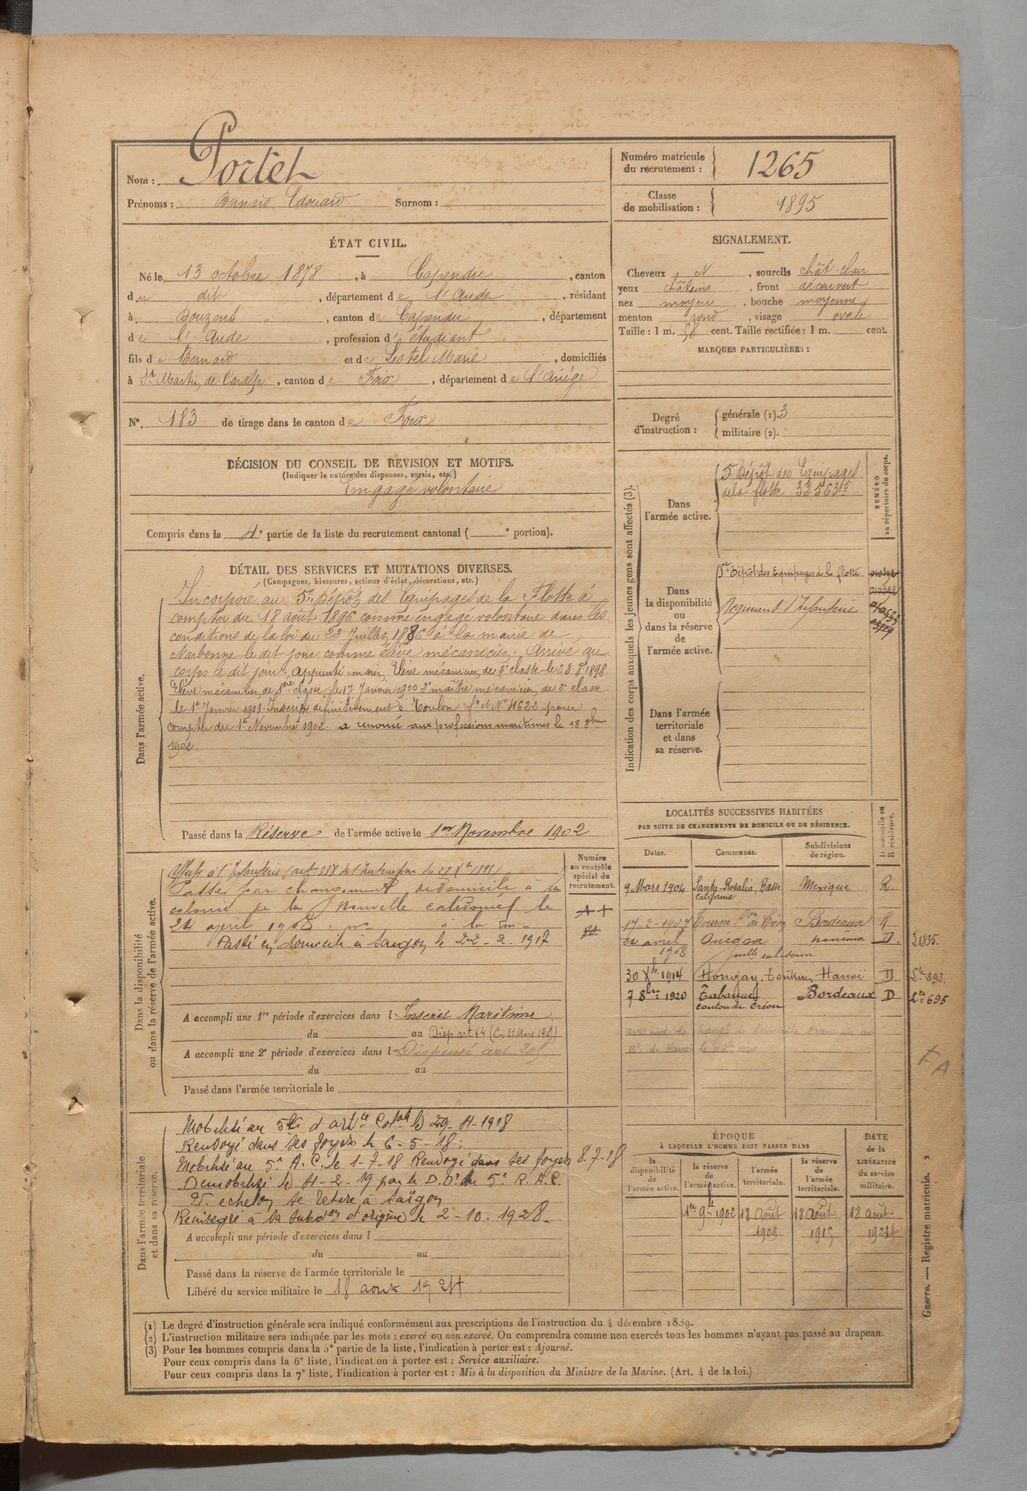 Nom : Portet
Prénoms : Bernard Edouard Surnom :
Numéro matricule du recrutement : 1265
Classe de mobilisation : 1895
ÉTAT CIVIL.
Né le 13 octobre 1878, à Capendu, canton
du dit, département de l'Aude, résidant
à Douzens, canton de Capendu, département
de l'Aude, profession d'étudiant
fils de Bernard et de Lestel Marie, domiciliés
à St Martin de Caralp, canton de Foix, département de l'Ariège
N° 183 de tirage dans le canton de Foix
SIGNALEMENT.
Cheveux N, sourcils chât. clair
yeux châtains, front découvert
nez moyen, bouche moyenne
menton rond, visage ovale
Taille : 1 m. 56 cent. Taille rectifiée : 1 m. cent.
MARQUES PARTICULIÈRES :
Degré d'instruction : générale (1). 3
militaire (2).
DÉCISION DU CONSEIL DE REVISION ET MOTIFS.
(Indiquer la nature des dispenses, sursis, etc.)
Engagé volontaire
Compris dans la 4e partie de la liste du recrutement cantonal ( e portion).
DÉTAIL DES SERVICES ET MUTATIONS DIVERSES.
(Campagnes, blessures, actions d'éclat, décorations, etc.)
Dans l'armée active.
Incorporé au 5e Dépôt des Equipages de la Flotte à
compter du 18 août 1896 comme engagé volontaire dans les
conditions de la loi du 22 Juillet 1886 à la mairie de
Narbonne le dit jour comme élève mécanicien. Arrivé au
corps le dit jour, apprenti marin, Elève mécanicien de 2e classe le 28 1898
Elève mécanicien de 1re classe le 17 Janvier 1900 2e maître mécanicien de 2e classe
le 1er Janvier 1901. Inscrit définitivement à Toulon fo et No 4622 pour
compter du 1er Novembre 1902. a renoncé aux professions maritimes le 18
1902.
Passé dans la Réserve de l'armée active le 1er Novembre 1902
Indication des corps auxquels les jeunes gens sont affectés (3).
NUMÉRO au répertoire du corps.
Dans l'armée active.
5e Dépôt des Equipages
de la flotte 33563
Dans la disponibilité ou dans la réserve de l'armée active.
5e Dépôt des Equipages de la flotte
Régiment d'Infanterie
Dans l'armée territoriale et dans sa réserve.
LOCALITÉS SUCCESSIVES HABITÉES
PAR SUITE DE CHANGEMENTS DE DOMICILE OU DE RÉSIDENCE.
Dates. Communes. Subdivisions de région. D. domicile ou R. résidence.
9 Mars 1904 Santa Rosalia, Basse Californie Mexique R
17-2-1907 Bordeaux R
24 avril 1908 nouméa D
30 Xbre 1914 Hongay. Tonkin Hanoï D
7 8bre 1920 Tabanac canton de Créon Bordeaux D
695
Dans la disponibilité ou dans la réserve de l'armée active.
Numéro au contrôle spécial du recrutement.
Passé par changement de domicile à la
colonie de la Nouvelle calédonie le
24 avril 1908
Passé en domicile à Saïgon le 22-2-1917
A accompli une 1re période d'exercices dans l Inscrit Maritime
du au Disp. art 54
A accompli une 2e période d'exercices dans l Dispensé
du au
Passé dans l'armée territoriale le
Dans l'armée territoriale et dans sa réserve.
Mobilisé au 5e d'artie Colale le 29-4-1918
Renvoyé dans ses foyers le 6-5-18.
Mobilisé au 5e A.C. le 1-7-18 Renvoyé dans ses foyers 8-7-18
Démobilisé le 4-2-19 par le D.D. du 5e R.A.C.
echelon se retire à Saïgon
Réintégré à sa subdon d'origine le 2-10-1928.
A accompli une période d'exercices dans l
du au
Passé dans la réserve de l'armée territoriale le
Libéré du service militaire le 18 août 1924
ÉPOQUE
À LAQUELLE L'HOMME DOIT PASSER DANS
DATE de la LIBÉRATION du service militaire.
la disponibilité de l'armée active. la réserve de l'armée active. l'armée territoriale. la réserve de l'armée territoriale.
1er 9bre 1902 18 août 1909 18 août 1915 18 août 1921
Guerre. — Registre matricule.
(1) Le degré d'instruction générale sera indiqué conformément aux prescriptions de l'instruction du 4 décembre 1889.
(2) L'instruction militaire sera indiquée par les mots : exercé ou non exercé. On comprendra comme non exercés tous les hommes n'ayant pas passé au drapeau.
(3) Pour les hommes compris dans la 5e partie de la liste, l'indication à porter est : Ajourné.
Pour ceux compris dans la 6e liste, l'indication à porter est : Service auxiliaire.
Pour ceux compris dans la 7e liste, l'indication à porter est : Mis à la disposition du Ministre de la Marine. (Art. 4 de la loi.)